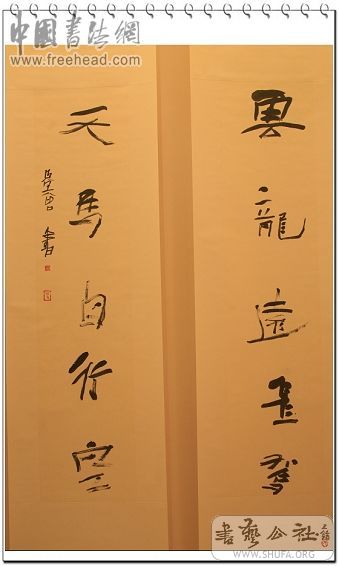 中國書法網
www.freehead.com
雲龍遠飛駕
天馬自行空
書藝公社
WWW.SHUFA.ORG